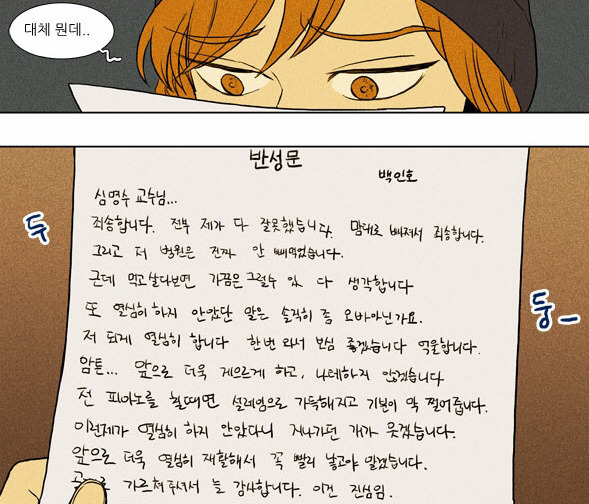 대체 뭔데..
반성문
백인호
심명수 교수님...
죄송합니다. 전부 제가 다 잘못했습니다. 맘대로 빠져서 죄송합니다.
그리고 저 병원은 진짜 안 빼먹었습니다.
근데 먹고살다보면 가끔은 그럴수 있 다 생각합니다
또 열심히 하지 안았단 말은 솔직히 좀 오바아닌가요.
저 되게 열심히 합니다 한번 와서 보심 좋겠습니다 억울합니다.
암튼... 앞으로 더욱 게으르게 하고, 나태하지 않겠습니다
전 피아노를 칠때면 설레임으로 가득해지고 기분이 막 찢어줍니다.
이런제가 열심히 하지 안았다니 지나가던 개가 웃겠습니다.
앞으로 더욱 열심히 재활해서 꼭 빨리 낳고야 말겠습니다.
가르쳐주셔서 늘 감사합니다. 이건 진심임.
두
둥-